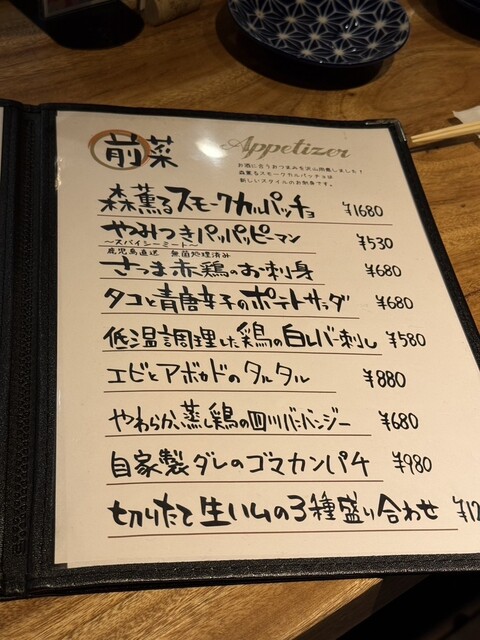 前菜
Appetizer
お酒に合うおつまみを沢山用意しました！
森薫るスモークカルパッチョは
新しいスタイルのお刺身です。
森薫るスモークカルパッチョ ¥1680
やみつきパッパッピーマン ¥530
〜スパイシーミート〜
鹿児島直送 無菌処理済み
さつま赤鶏のお刺身 ¥680
タコと青唐辛子のポテトサラダ ¥680
低温調理した鶏の白レバー刺し ¥580
エビとアボカドのタルタル ¥880
やわらか蒸し鶏の四川バンバンジー ¥680
自家製ダレのゴマカンパチ ¥980
切りたて生ハムの3種盛り合わせ ¥12